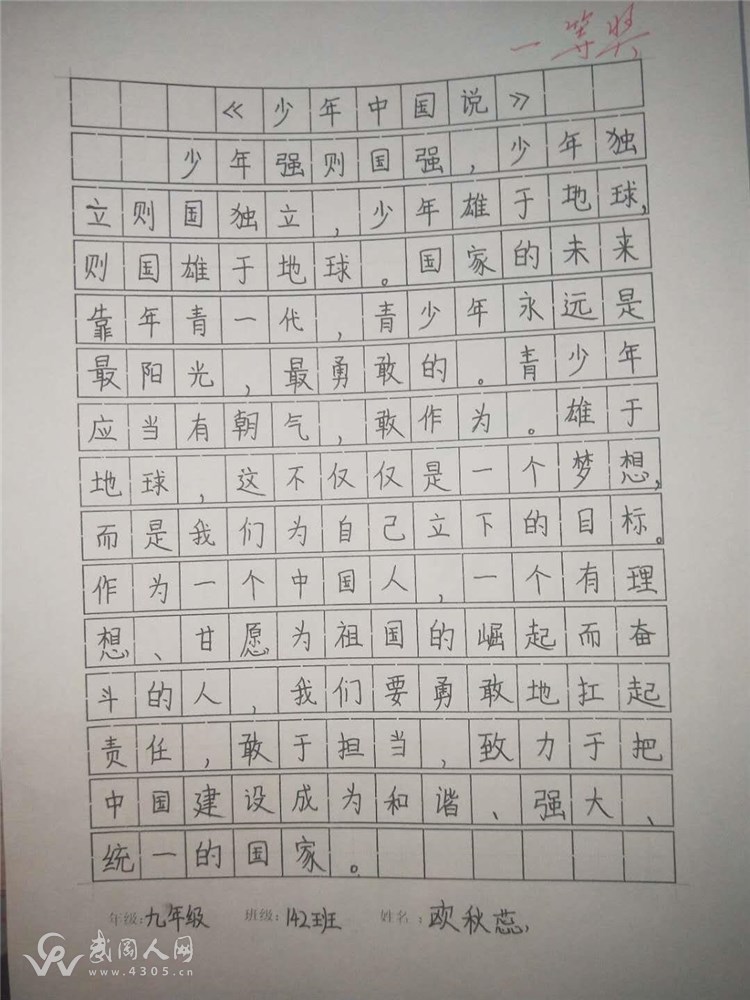 一等奖
《少年中国说》
少年强则国强，少年独
立则国独立，少年雄于地球，
则国雄于地球。国家的未来
靠年青一代，青少年永远是
最阳光，最勇敢的。青少年
应当有朝气，敢作为。雄于
地球，这不仅仅是一个梦想，
而是我们为自己立下的目标。
作为一个中国人，一个有理
想、甘愿为祖国的崛起而奋
斗的人，我们要勇敢地扛起
责任，敢于担当，致力于把
中国建设成为和谐、强大、
统一的国家。
年级：九年级 班级：142班 姓名：欧秋蕊
武冈人网
www.4305.cn